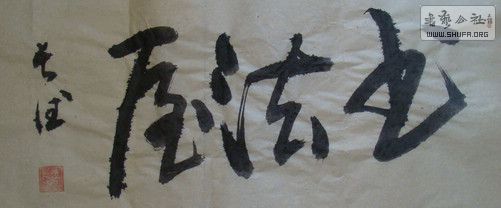 书法屋
書藝公社
WWW.SHUFA.ORG